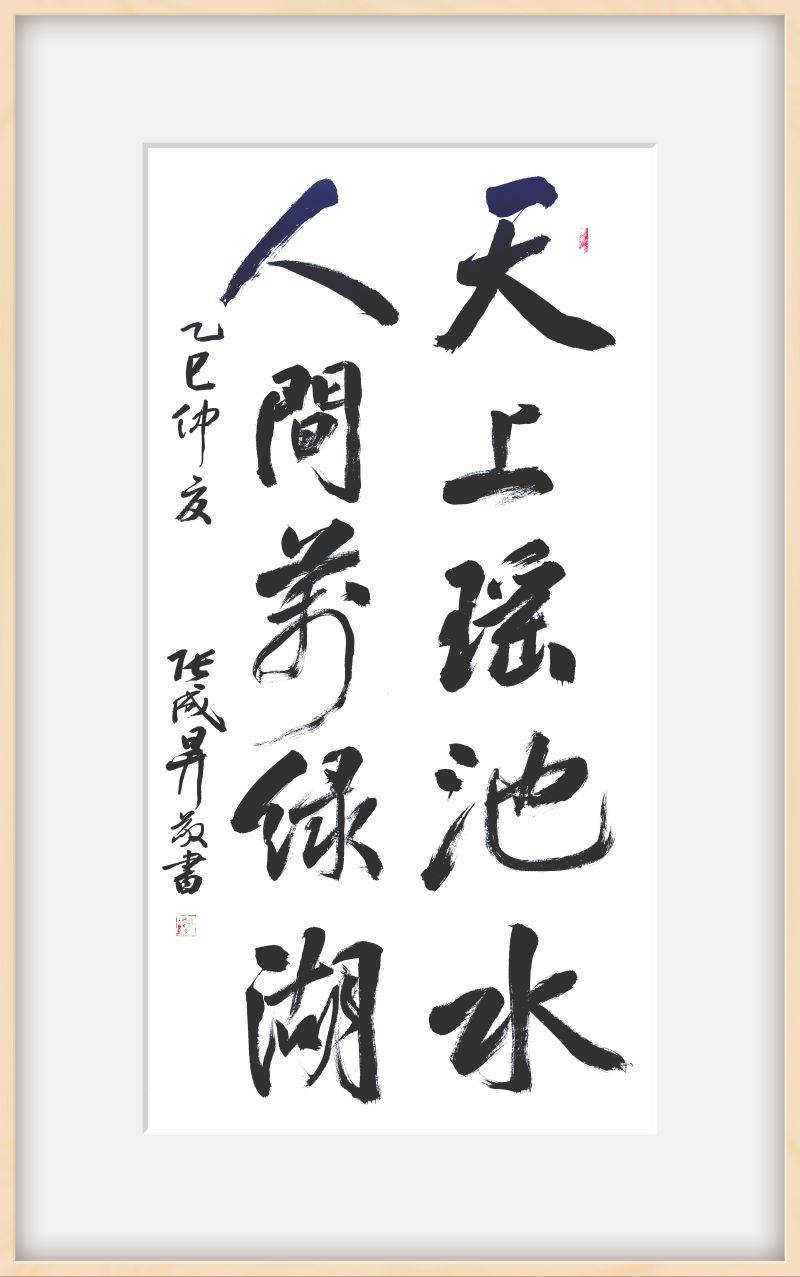 天上瑶池水
人間萬绿湖
乙巳仲夏
张成昇敬書